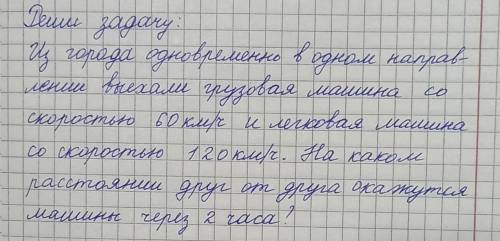 Реши задачу:
Из города одновременно в одном направ-
лении выехали грузовая машина со
скоростью 60 км/ч и легковая машина
со скоростью 120 км/ч. На каком
расстоянии друг от друга окажутся
машины через 2 часа?